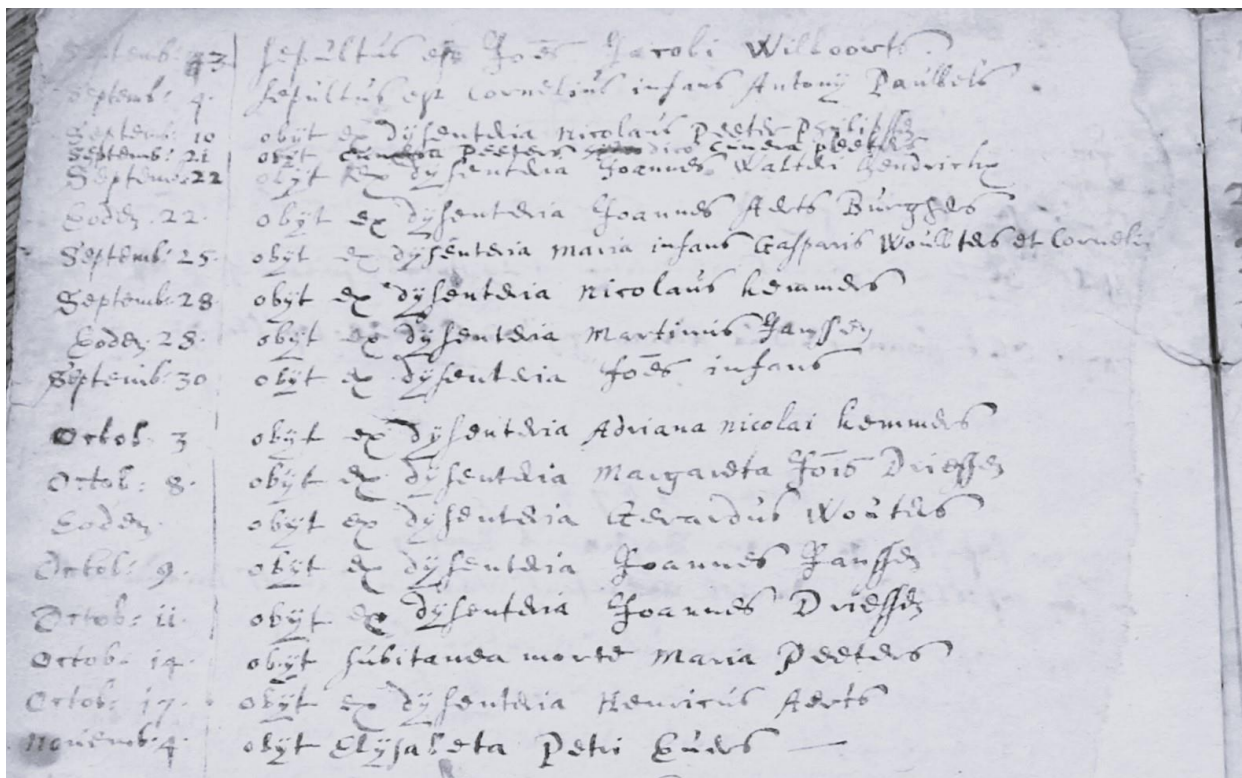 Septemb: sepultus est Joēs Jacobi Willoorts.
Septemb: 4. sepultus est Cornelius infans Antony Paulbels
Septemb: 10 obÿt ex dÿsenteria Nicolaus Peeter Philipssen
Septemb: 21 obÿt Peeters dico Cunera Peeters
Septemb: 22 obÿt ex dÿsenteria Joannes Walteri Hendricks
Eoden 22. obÿt ex dÿsenteria Joannes Aerts Burghers
Septemb: 25. obÿt ex dÿsenteria Maria infans Casparis Woulters et Corneli
Septemb: 28 obÿt ex dÿsenteria Nicolaus Kemmers
Eoden 28. obÿt ex dÿsenteria Martinus Janssen
Septemb: 30 obÿt ex dÿsenteria Joēs infans
Octob. 3 obÿt ex dÿsenteria Adriana Nicolai Kemmers
Octob: 8. obÿt ex dÿsenteria Margareta Joīs Driessen
Eoden obÿt ex dÿsenteria Gerardus Wouters
Octob: 9. obÿt ex dÿsenteria Joannes Janssen
Octob: 11. obÿt ex dÿsenteria Joannes Driessen
Octob: 14. obÿt subitanea morte Maria Peeters
Octob: 17. obÿt ex dÿsenteria Henricus Aerts
Novemb: 4. obÿt Elÿsabeta Petri Euers